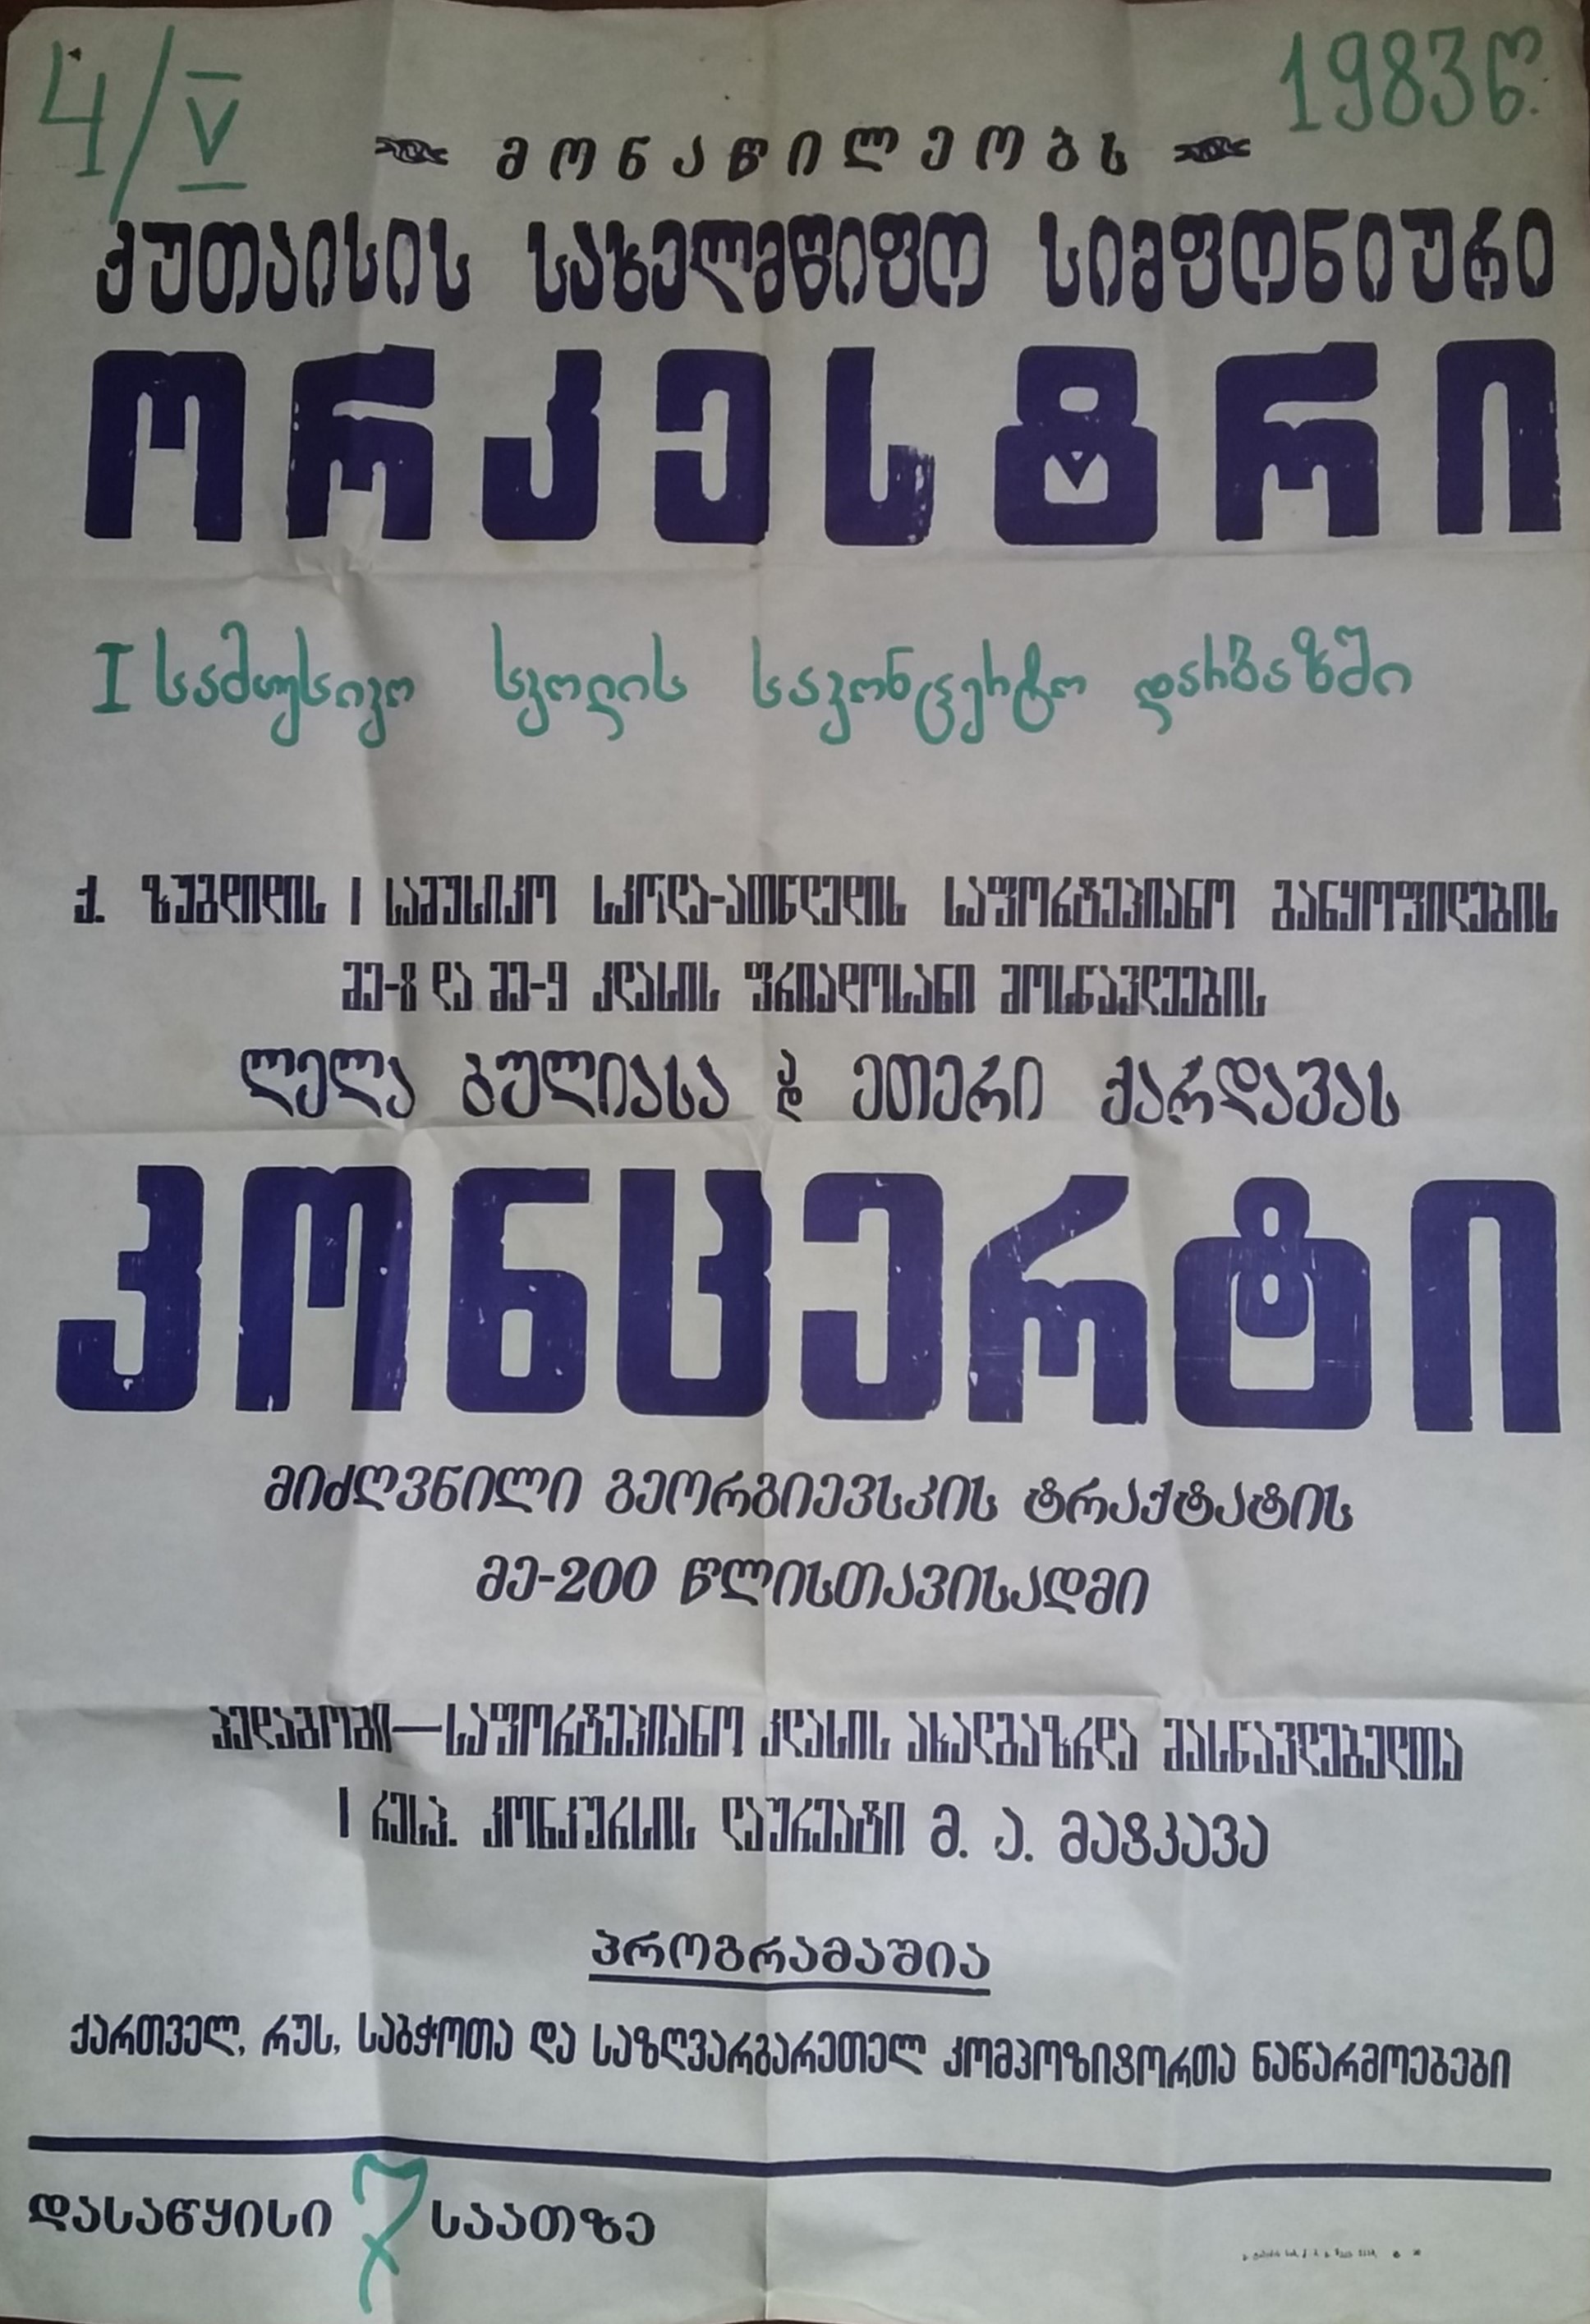 4/V 1983 წ.
მონაწილეობს
ქუთაისის სახელმწიფო სიმფონიური
ორკესტრი
I სამუსიკო სკოლის საკონცერტო დარბაზში
ქ. ზუგდიდის I სამუსიკო სკოლა-ათწლედის საფორტეპიანო განყოფილების
მე-8 და მე-9 კლასის ფრიადოსანი მოსწავლეების
ლელა გულიასა და ეთერი ქარდავას
კონცერტი
მიძღვნილი გეორგიევსკის ტრაქტატის
მე-200 წლისთავისადმი
პედაგოგი—საფორტეპიანო კლასის ახალგაზრდა მასწავლებელთა
I რესპ. კონკურსის ლაურეატი მ. ა. მატკავა
პროგრამაშია
ქართველ, რუს, საბჭოთა და საზღვარგარეთელ კომპოზიტორთა ნაწარმოებები
დასაწყისი 7 საათზე